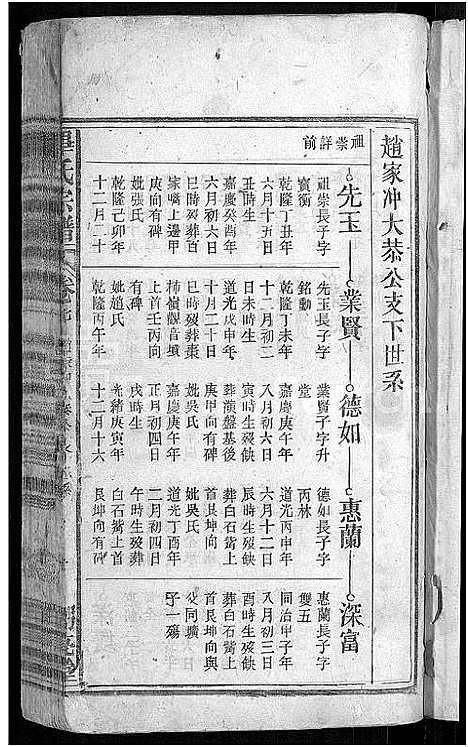 趙家冲大恭公支下世系
祖崇詳前
先玉
祖崇長子字
賓衡
乾隆丁丑年
六月十五日
丑時生
嘉慶癸酉年
六月初六日
巳時殁葬百
家嘴上邊甲
庚向有碑
妣張氏
乾隆己卯年
十二月二十
業賢
先玉長子字
銘勳
乾隆丁未年
十二月初二
日未時生
道光戊申年
十月二十日
巳時殁葬棗
柿嶺觀音墳
上首壬丙向
有碑
妣趙氏
乾隆丙午年
德如
業賢子字升
堂
嘉慶庚午年
八月初六日
寅時生殁缺
葬演盤基後
庚甲向有碑
妣吳氏
嘉慶庚午年
正月初四日
戌時生
光緒庚寅年
十二月十六
惠蘭
德如長子字
丙林
道光丙申年
六月十二日
辰時生殁缺
葬白石觜上
首艮坤向
妣吳氏
道光丁酉年
二月初四日
午時生殁葬
白石觜上首
艮坤向有碑
深富
惠蘭長子字
雙五
同治甲子年
八月初三日
酉時生殁缺
葬白石觜上
首艮坤向與
父同壙
子一殤
氏宗譜
卷七